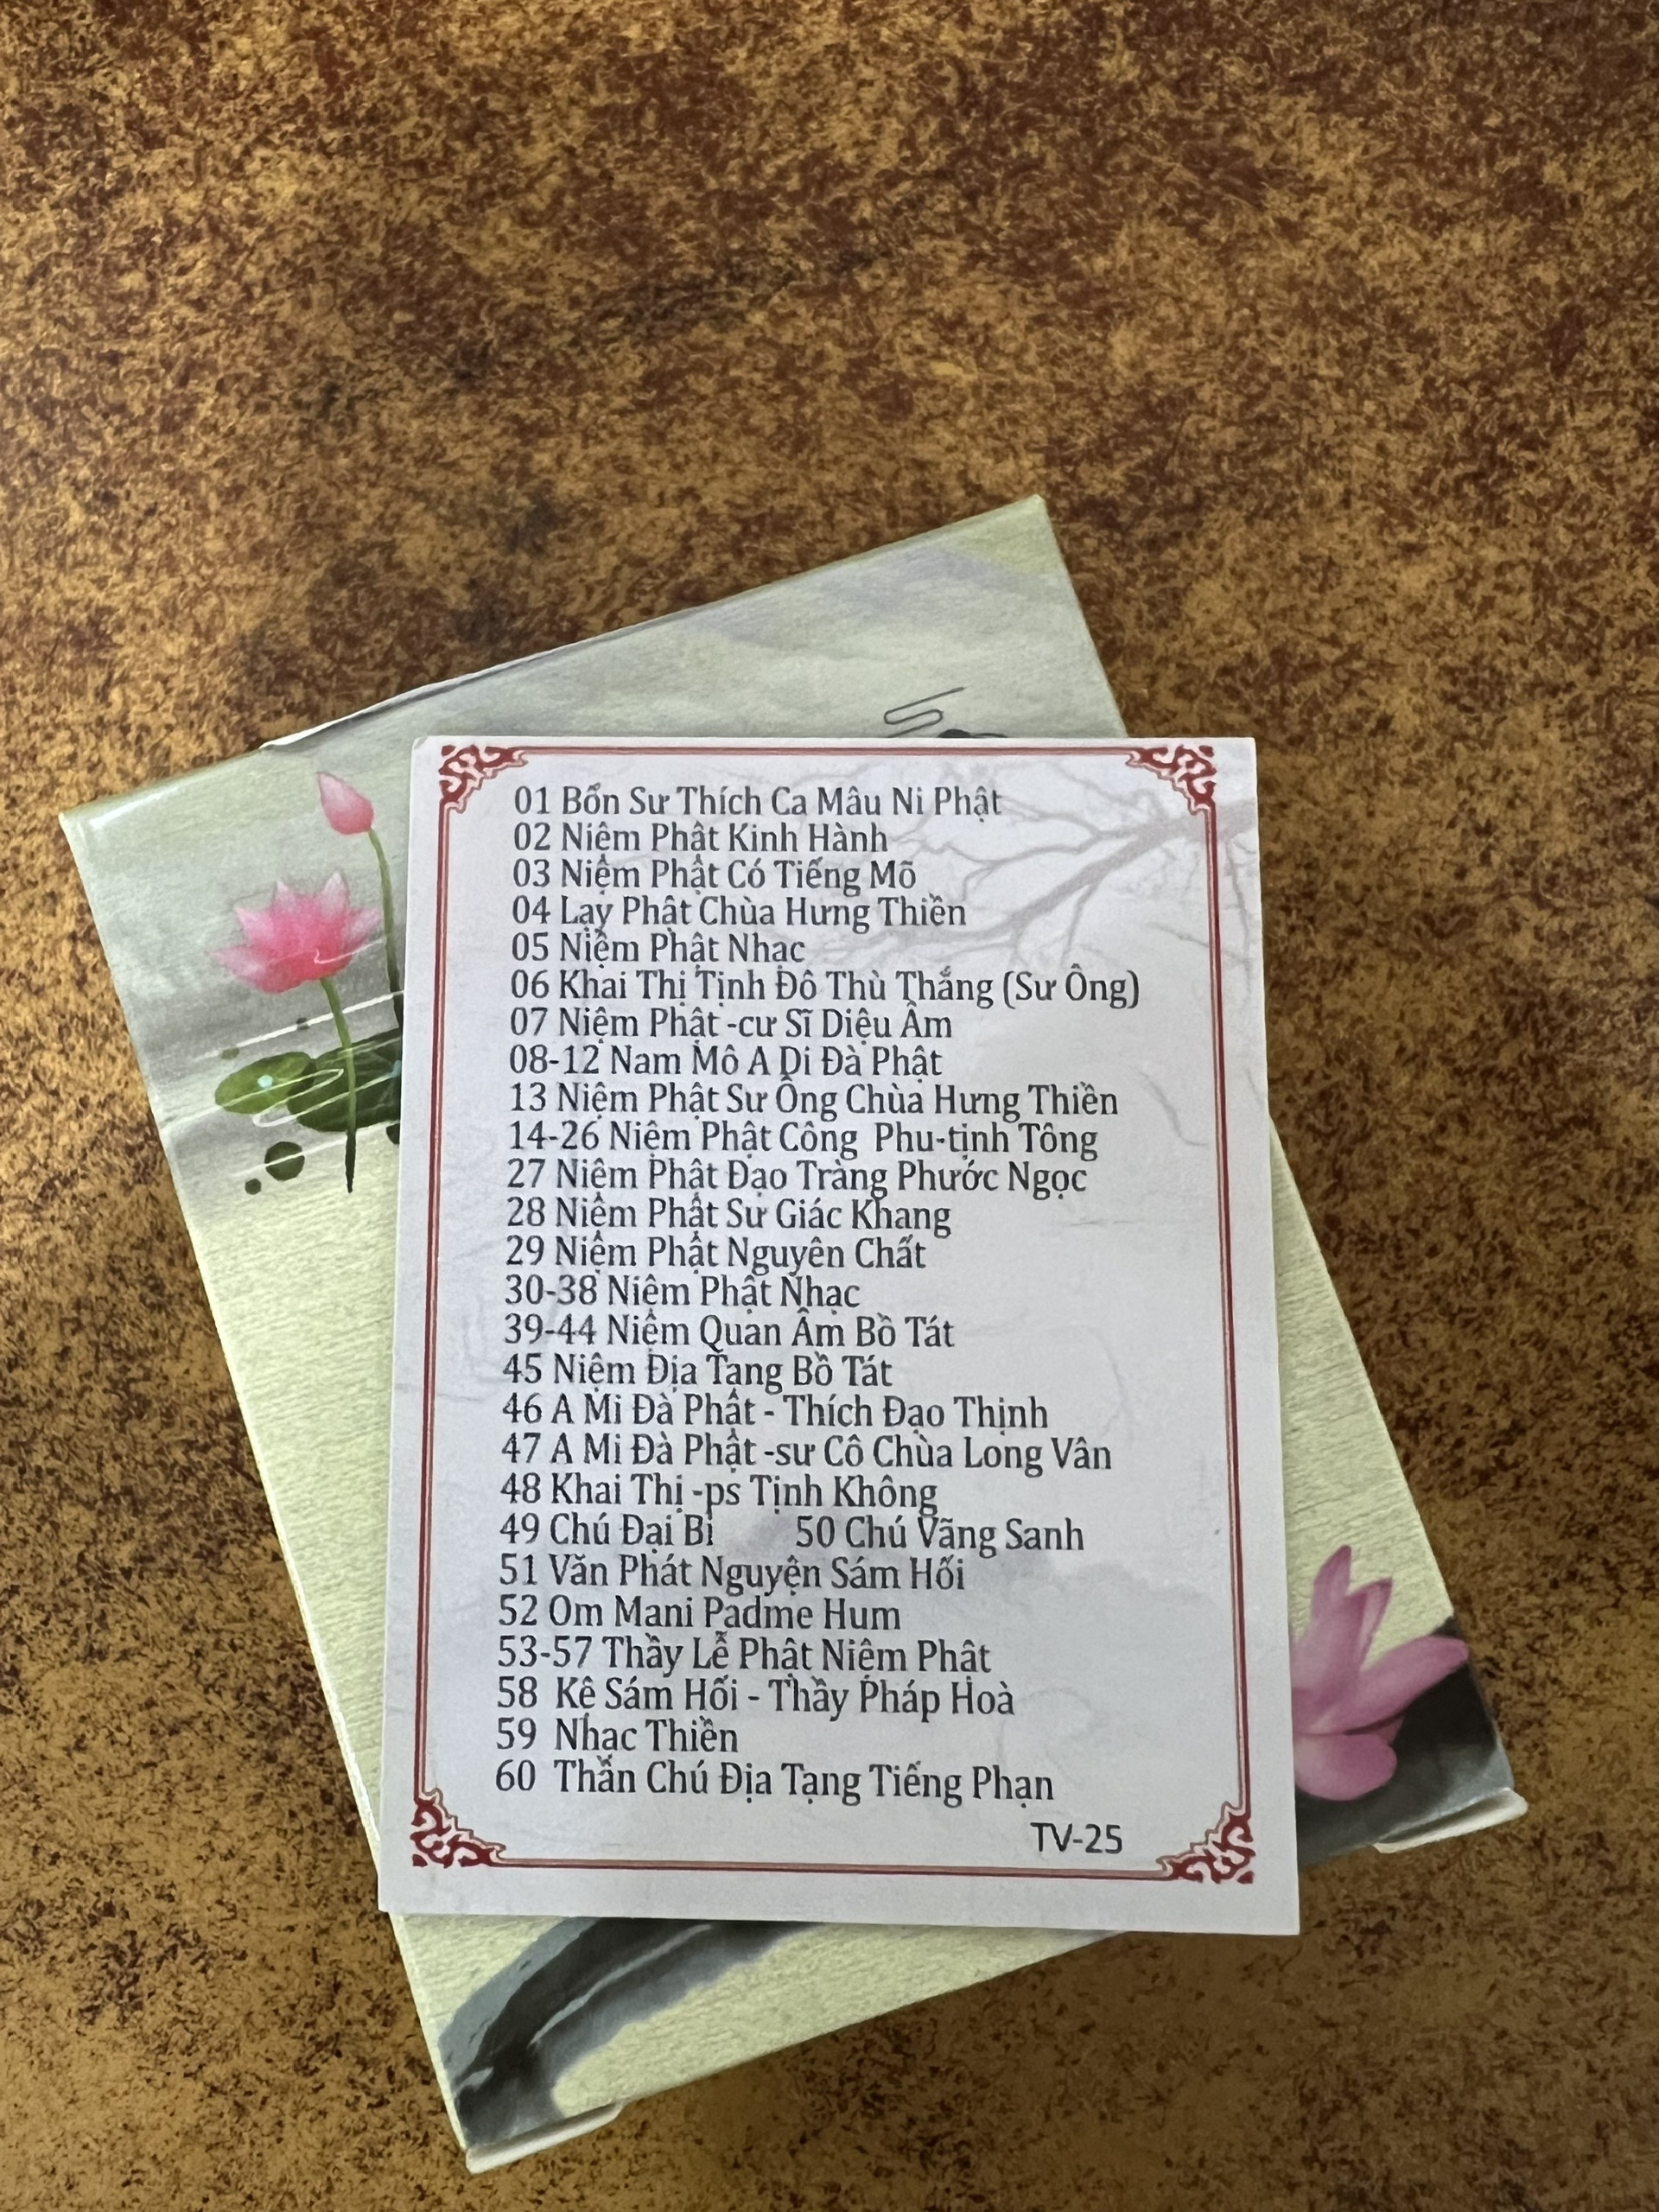 01 Bổn Sư Thích Ca Mâu Ni Phật
02 Niệm Phật Kinh Hành
03 Niệm Phật Có Tiếng Mõ
04 Lạy Phật Chùa Hưng Thiền
05 Niệm Phật Nhạc
06 Khai Thị Tịnh Đô Thù Thắng (Sư Ông)
07 Niệm Phật -cư Sĩ Diệu Âm
08-12 Nam Mô A Di Đà Phật
13 Niệm Phật Sư Ông Chùa Hưng Thiền
14-26 Niệm Phật Công Phu-tịnh Tông
27 Niệm Phật Đạo Tràng Phước Ngọc
28 Niệm Phật Sư Giác Khang
29 Niệm Phật Nguyên Chất
30-38 Niệm Phật Nhạc
39-44 Niệm Quan Âm Bồ Tát
45 Niệm Địa Tạng Bồ Tát
46 A Mi Đà Phật - Thích Đạo Thịnh
47 A Mi Đà Phật -sư Cô Chùa Long Vân
48 Khai Thị -ps Tịnh Không
49 Chú Đại Bi 50 Chú Vãng Sanh
51 Văn Phát Nguyện Sám Hối
52 Om Mani Padme Hum
53-57 Thầy Lễ Phật Niệm Phật
58 Kệ Sám Hối - Thầy Pháp Hoà
59 Nhạc Thiền
60 Thần Chú Địa Tạng Tiếng Phạn
TV-25